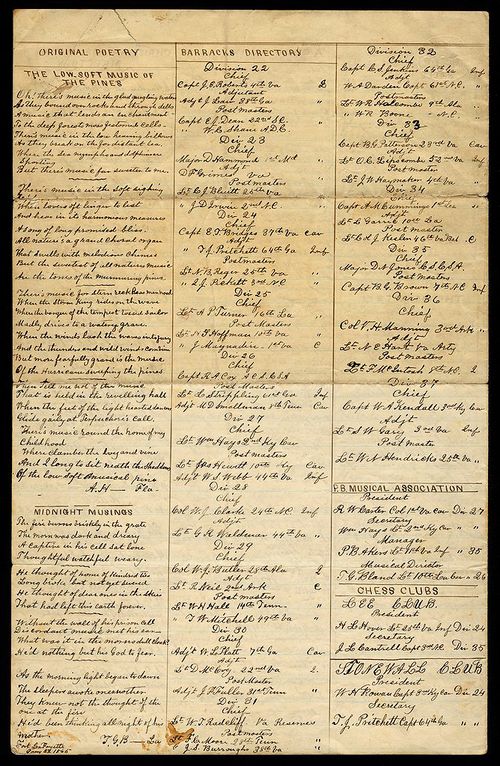 ORIGINAL POETRY
THE LOW, SOFT MUSIC OF
THE PINES
Oh! There's music in the glad
As they bound over rock and through dells
A music that lends an enchantment
To the deep forests
There's music in the low heaving billows
As they break on the far distant lea
Where the Sea nymphs and
Sporting
But There's music far sweeter to me.
There's music in the Soft sighing
Where loves oft linger to list
And hear in its harmonious measures
A song of long promised bliss.
All nature is a grand Choral organ
That swells with melodious Chimes
But the sweetest of all nature's music
Are the tones of the murmuring pines.
There's music for stern reckless men
When the Storm King rides on the wave
When the vengeance of the tempest tossed sailor
Madly drives to a watery grave.
When the winds lash the waves in
And the thunders and wild winds
But more fearfully grand is the music
Of the Hurricane sweeping the pines
Then tell me not of the music
That is held in the revelling hall
When the feet of the light hearted dancers
Glide gaily at Terpsichore's Call.
There's music round the home of my
Childhood
Where clamber the Ivy and vine
And I long to sit neath the Shadows
Of the low Soft musical pines
A.H— Fla.
MIDNIGHT MUSINGS
The fire burns briskly in the grate
The morn was dark and dreary
A captive in his cell sat lone
Thoughtful watchful weary.
He thought of home of Kindred ties
Long broke but not yet
He thought of dear ones in the
That had left this earth forever.
Without the walls of his prison all
Discordant music met his ear
What was it in the
He'd nothing but his God to fear.
As the morning light began to dawn
The sleepers awoke one another
They knew not the thought of the
one at the fire
He'd been thinking all night of his
mother.
T.G.B— La
Fort LaFayette
1865
BARRACKS DIRECTORY
Division 22
Chief
Capt J.E. Roberts Va
Adjutant
Adjt E.J. Dean 38th Ga
Post master
Capt E.J. Dean 22nd S.C.
" W.C. Shane A.D.C.
Div 23
Chief
Major D Hammond 1st Md
D.F. Grimes Va
Postmasters
Lt C.J. Bluitt 25th Va
" J.D. Irwin 2nd N.C.
Div 24
Chief
Capt E.T. Bridges 37th Va Cav
Adjt
" T.J. Pritchett 64th Ga Inf
Postmasters
Lt N.B. Reger 25th Va "
" J. Peskett 3rd N.C "
Div 25
Chief
Lt A P Turner 16th La "
Post Masters
Lt H.F. Hoffman Va "
" J. Magnadier 1st Va C
Div 26
Chief
Capt R.A. Coy I.S.C.S.A
Post Masters
Lt L Strippling Ga Inf
Adjt M.D. Smallman 8th Tenn Cav
Div 27
Chief
Lt Wm Hays 2nd Ky Cav
Post Masters
Lt Jas Hewitt 10th Ky Cav
Adjt W S Webb 44th Va Inf
Div 28
Chief
Col W.J. Clarke 24th N.C. Inf
Adjt
Lt G.R. Waldener 44th Va "
Div 29
Chief
Col W.J. Butler 25th Ala
Adjt
Lt R. Neil 2nd Ark C
Post Masters
Lt W H Hall 14th Tenn. "
" T.W. Mitchell 49th Va "
Div 30
Chief
Adjt W.L. Platt 7th Ga Cav
Adjt
Lt D. McCoy 23rd Va
Post Master
Adjt J.P. Fuller 31st Tenn "
Div 31
Chief
Lt W.T. Radcliff Va Reserves
Post Masters
Lt F.C. Moore 28th Tenn "
J.S. Burroughs 38th Va "
Division 32
Chief
Capt C.S. Jenkins 64th Ga Inf
Adjt
W A Darden Capt 61st N.C. "
Postmasters
Lt W.R. Halcombe 9th Ala "
" W R Bond N.C. "
Div 33
Chief
Capt B.G. Patterson 23rd Va Cav
Adjt
Lt O.C. Lipscombe 52nd Va Inf
Post Master
Lt J.W. Haymaker 4th Va
Div 34
Chief
Capt A.M. Cummings 1st La
Adjt
Lt L. Garrie 10th La
Post master
Lt C.d.J. Keslen 46th Va Bat. C
Div 35
Chief
Major D.H. Jones C.S.C.S.A
Post Masters
Capt B.G. Brown 7th N.C Inf
Div 36
Chief
Col V.H. Manning 3rd Ark "
Adjt
Lt N.C. Hart Va Arty
Post masters
Lt F. McIntosh 8th N.C.
Div 37
Chief
Capt W A Kendall 3rd Ky Cav
Adjt
Lt S W Gary 3rd Va Inf
Post Master
Lt W.N Hendricks 25th Va "
P.B. MUSICAL ASSOCIATION
President
R.W. Carter Col 1st Va Cav Div 27
Secretary
Wm Hays Lt 2nd Ky Cav " "
Manager
P.B. Akers Lt Va Inf " 35
Musical Director
T.G. Bland Lt 10th La Cav " 26
CHESS CLUBS
LEE CLUB
President
H.L. Hover Lt 25th Va Inf Div 24
Secretary
J.L. Cantrell Capt 3rd N.C. Div 35
STONEWALL CLUB
President
W.H. Rowan Capt 3rd Ky Cav Div 24
Secretary
T.J. Pritchett Capt 64th Ga " "